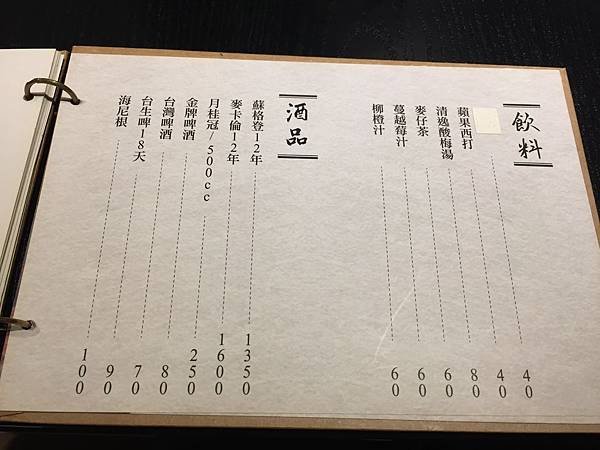 飲料
40
蘋果西打 40
清逸酸梅湯 80
麥仔茶 60
蔓越莓汁 60
柳橙汁 60
酒品
蘇格登12年 1350
麥卡倫12年 1600
月桂冠/500cc 250
金牌啤酒 80
台灣啤酒 70
台生啤18天 90
海尼根 100